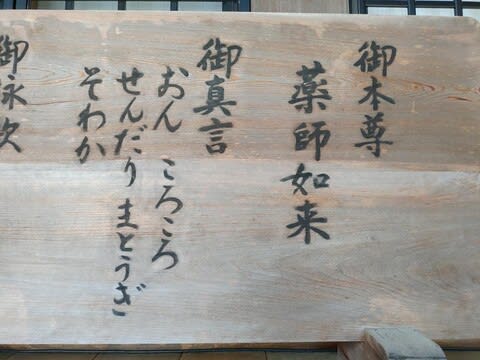 御本尊
薬師如来
御真言
おん ころころ
せんだり まとうぎ
そわか
御詠歌